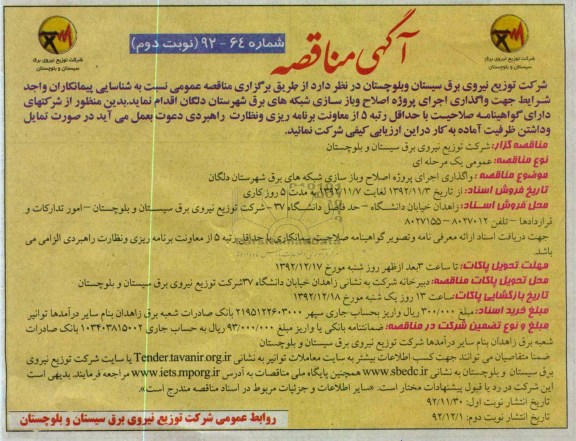 آگهی مناقصه
شماره ۶۴-۹۲ (نوبت دوم)
شرکت توزیع نیروی برق
سیستان و بلوچستان
شرکت توزیع نیروی برق
سیستان و بلوچستان
شرکت توزیع نیروی برق سیستان وبلوچستان در نظر دارد از طریق برگزاری مناقصه عمومی نسبت به شناسایی پیمانکاران واجد
شرایط جهت واگذاری اجرای پروژه اصلاح وباز سازی شبکه های برق شهرستان دلگان اقدام نماید.بدین منظور از شرکتهای
دارای گواهینامه صلاحیت با حداقل رتبه ۵ از معاونت برنامه ریزی ونظارت راهبردی دعوت بعمل می آید در صورت تمایل
وداشتن ظرفیت آماده به کار در این ارزیابی کیفی شرکت نمائید.
مناقصه گزار: شرکت توزیع نیروی برق سیستان و بلوچستان
نوع مناقصه: عمومی یک مرحله ای
موضوع مناقصه: واگذاری اجرای پروژه اصلاح وباز سازی شبکه های برق شهرستان دلگان
تاریخ فروش اسناد: از تاریخ ۱۳۹۲/۱۱/۳ لغایت ۱۳۹۲/۱۱/۷ به مدت ۵ روز کاری
محل فروش اسناد: زاهدان خیابان دانشگاه – حد فاصل دانشگاه ۳۷ – شرکت توزیع نیروی برق سیستان و بلوچستان – امور تدارکات و
قراردادها – تلفن ۸۰۲۷۰۱۲ – ۸۰۲۷۱۵۵
جهت دریافت اسناد ارائه معرفی نامه وتصویر گواهینامه صلاحیت پیمانکاری با حداقل رتبه ۵ از معاونت برنامه ریزی ونظارت راهبردی الزامی می
باشد.
مهلت تحویل پاکات: تا ساعت ۳ بعد ازظهر روز شنبه مورخ ۱۳۹۲/۱۲/۱۷
محل تحویل پاکات مناقصه: دبیرخانه شرکت به نشانی زاهدان خیابان دانشگاه ۳۷ شرکت توزیع نیروی برق سیستان و بلوچستان
تاریخ بازگشایی پاکات: ساعت ۱۳ روز یک شنبه مورخ ۱۳۹۲/۱۲/۱۸
مبلغ خرید اسناد: مبلغ ۳۰۰/۰۰۰ ریال واریز بحساب جاری سپهر ۲۱۹۵۱۲۲۶۰۳۰۰۰ بانک صادرات شعبه برق زاهدان بنام سایر درآمدها توانیر
مبلغ و نوع تضمین شرکت در مناقصه: ضمانتنامه بانکی یا واریز مبلغ ۹۳/۰۰۰/۰۰۰ ریال به حساب جاری ۱۰۳۴۰۳۸۱۵۰۰۲ بانک صادرات
شعبه برق زاهدان بنام سایر درآمدها شرکت توزیع نیروی برق سیستان و بلوچستان
ضمنا متقاضیان می توانند جهت کسب اطلاعات بیشتر به سایت معاملات توانیر به نشانی Tender.tavanir.org.ir یا سایت شرکت توزیع نیروی
برق سیستان و بلوچستان به نشانی www.sbedc.ir همچنین پایگاه ملی مناقصات به آدرس www.iets.mporg.ir مراجعه فرمایند. بدیهی است
این شرکت در رد یا قبول پیشنهادات مختار است. «سایر اطلاعات و جزئیات مربوط در اسناد مناقصه مندرج است».
تاریخ انتشار نوبت اول: ۹۲/۱۱/۳۰
تاریخ انتشار نوبت دوم: ۹۲/۱۲/۱
روابط عمومی شرکت توزیع نیروی برق سیستان و بلوچستان